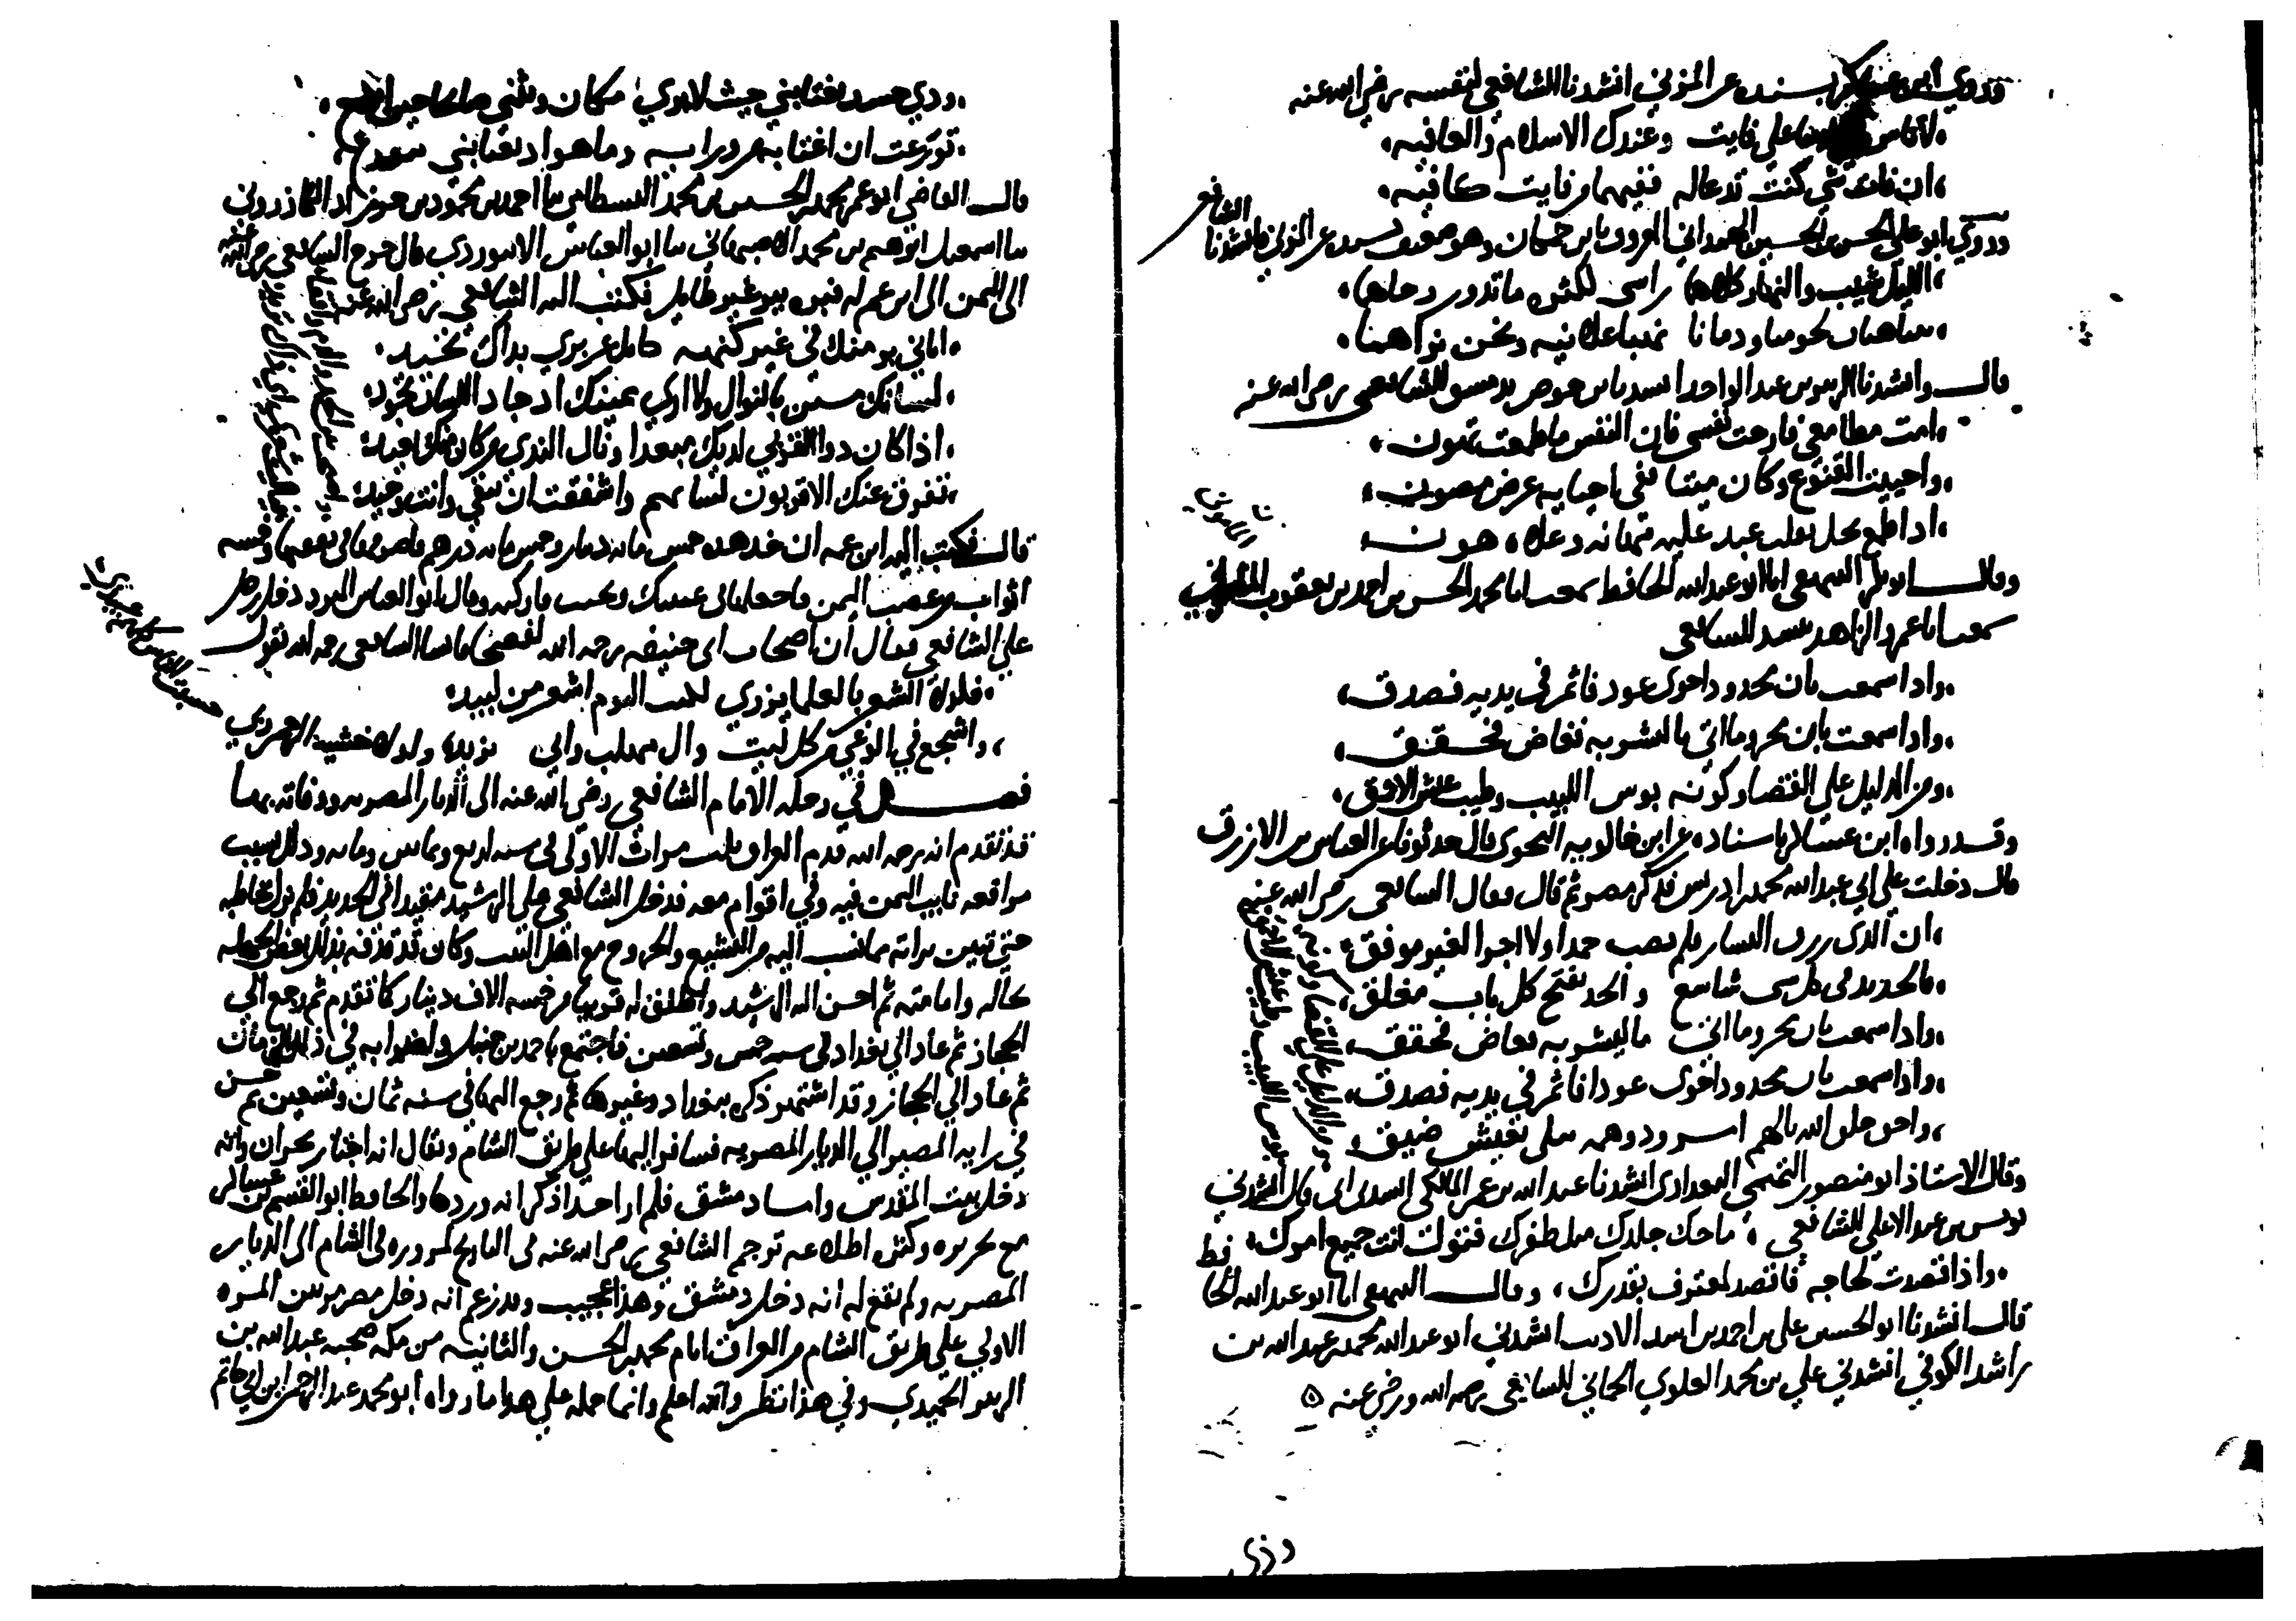 وروي ابن عساكر بسنده عن المزني انشدنا الشافعي لنفسه رضي الله عنه
لا تاس علي فايت وعندك الاسلام والعافيه
ان فات شي كنت تدعا له ففيهما من فايت كافيه
وروي ابو علي الحسن بن الحسين الهمداني المعروف بابن حمكان وهو ضعيف بسنده عن المزني قال انشدنا الشافعي
الليل شيب والنهار كلاهما راسي لكثره ما تدور رحاهما
يتناهبان لحومنا ودمانا نهبا علانيه ونحن نراهما
قال وانشدنا الزبير بن عبد الواحد انشدنا ابن جوصا بدمشق للشافعي رضي الله عنه
امت مطامعي فارحت نفسي فان النفس ما طمعت تهون
واحييت القنوع وكان ميتا ففي احيايه عرض مصون
اذا طمع يحل بقلب عبد علته مهانه وعلاه هون
وقال البيهقي انا ابو عبد الله الحافظ سمعت ابا محمد الحسن بن احمد بن يعقوب
سمعت ابا عمر الزاهد ينشد للشافعي
واذا سمعت بان مجدودا حوى عودا فاثمر في يديه فصدق
واذا سمعت بان محروما اتي ما ليشربه فغاض فحقق
ومن الدليل علي القضا وكونه بوس اللبيب وطيب عيش الاحمق
وقد رواه ابن عساكر باسناده عن ابن خالويه النحوي قال حدثونا عن العباس بن الازرق
قال دخلت علي ابي عبد الله محمد بن ادريس فذكر قصه ثم قال فقال الشافعي رضي الله عنه
ان الذي رزق اليسار فلم يصب حمدا ولا اجرا لغير موفق
فالجد يدني كل شي شاسع والجد يفتح كل باب مغلق
واذا سمعت بان محروما اتي ما ليشربه فغاض فحقق
واذا سمعت بان مجدودا حوى عودا فاثمر في يديه فصدق
واحق خلق الله بالهم امرو ذو همه يبلى بعيش ضيق
ومن الدليل علي القضا وكونه
بوس اللبيب وطيب عيش الاحمق
وقال الاستاذ ابو منصور التميمي البغدادي انشدنا عبد الله بن عمر المالكي انشدني ابي قال انشدني
يونس بن عبد الاعلي للشافعي ما حك جلدك مثل ظفرك فتول انت جميع امرك
واذا قصدت لحاجه فاقصد لمعترف بقدرك وقال البيهقي انا ابو عبد الله الحافظ
قال انشدنا ابو الحسين علي بن احمد بن اسد الاديب انشدني ابو عبد الله محمد بن عبد الله بن
راشد الكوفي انشدني علي بن محمد العلوي الحماني للشافعي رحمه الله ورضي عنه
وذي
وذي حسد يغتابني حيث لا يري مكاني ويثني صالحا حيث اسمع
تورعت ان اغتابه من ورايه وما هو اذ يغتابني متورع
قال القاضي ابو عمر محمد بن الحسين بن محمد البسطامي نا احمد بن محمود بن خرزاذ الكازروني
نا اسمعيل بن ابرهيم بن محمد الاصبهاني نا ابو العباس الابيوردي قال خرج الشافعي رضي الله عنه
الى اليمن الى ابن عم له فبره ببر غير طايل فكتب اليه الشافعي رضي الله عنه
اتاني بر منك في غير كنهه كانك عن بري بذاك تحيد
لسانك هش بالنوال ولا اري يمينك ان جاد اللسان تجود
اذا كان ذو القربي لديك مبعدا ونال الندي من كان منك بعيد
تفرق عنك الاقربون لشانهم واشفقت ان تبقي وانت وحيد
قال فكتب اليه ابن عمه ان خذ هذه خمس مايه دينار وخمس مايه درهم فاصرفها في نفقتها وخمسه
اثواب من عصب اليمن فاجعلها في عيبتك وقال ابو العباس المبرد دخل رجل
علي الشافعي فقال ان اصحاب ابي حنيفه رحمه الله لفصحا فانشا الشافعي رحمه الله يقول
فلولا الشعر بالعلما يزري لكنت اليوم اشعر من لبيد
واشجع في الوغي من كل ليث وال مهلب وابي يزيد ولولا خشيه الرحمن ربي
حسبت الناس كلهم عبيدي
فصل في رحله الامام الشافعي رضي الله عنه الى الديار المصريه ووفاته بها
قد تقدم انه رحمه الله قدم العراق ثلاث مرات الاولي في سنه اربع وثمانين ومايه وذلك بسبب
مرافعه نايب اليمن فيه وفي اقوام معه فدخل الشافعي علي الرشيد مقيدا في الحديد فلم يزل يخاطبه
حتي تبين براته مما نسب اليه من التشيع والخروج مع اهل البيت وكان قد قذفه بذلك بعض
بحاله وامامته ثم احسن اليه الرشيد واطلق له قريبا من خمسه الاف دينار كما تقدم ثم رجع الي
الحجاز ثم عاد الي بغداد في سنه خمس وتسعين فاجتمع باحمد بن حنبل في ذلك الزمان
ثم عاد الي الحجاز وقد اشتهر ذكره ببغداد وغيرها ثم رجع اليها في سنه ثمان وتسعين ثم حسن
في رايه المصير الي الديار المصريه فسافر اليها علي طريق الشام ويقال انه اجتاز بحران وانه
دخل بيت المقدس واما دمشق فلم ار احدا ذكر انه وردها والحافظ ابو القسم بن عساكر
مع تحريره وكثره اطلاعه ترجم الشافعي رضي الله عنه في التاريخ لمروره في الشام الى الديار
المصريه ولم يقع له انه دخل دمشق وهذا عجيب وقد زعم انه دخل مصر مرتين المره
الاولي علي طريق الشام من العراق ايام محمد بن الحسن والثانيه من مكه صحبه عبد الله بن
الزبير الحميدي وفي هذا نظر والله اعلم وانما حمله علي هذا ما رواه ابو محمد عبد الرحمن ابن ابي حاتم